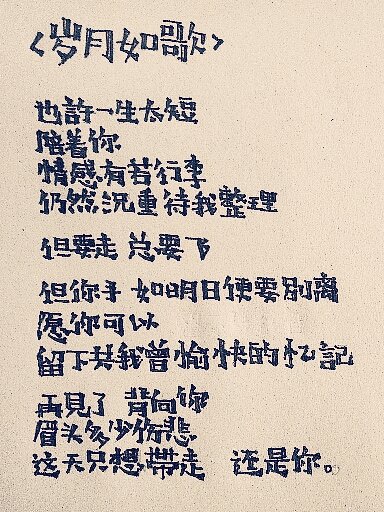 〈岁月如歌〉
也許一生太短
陪着你
情感有若行李
仍然沉重待我整理
但要走 总要飞
但你手 如明日便要别離
愿你可以
留下共我曾愉快的忆記
再見了 背向你
眉头多少伤悲
这天只想帶走 还是你。